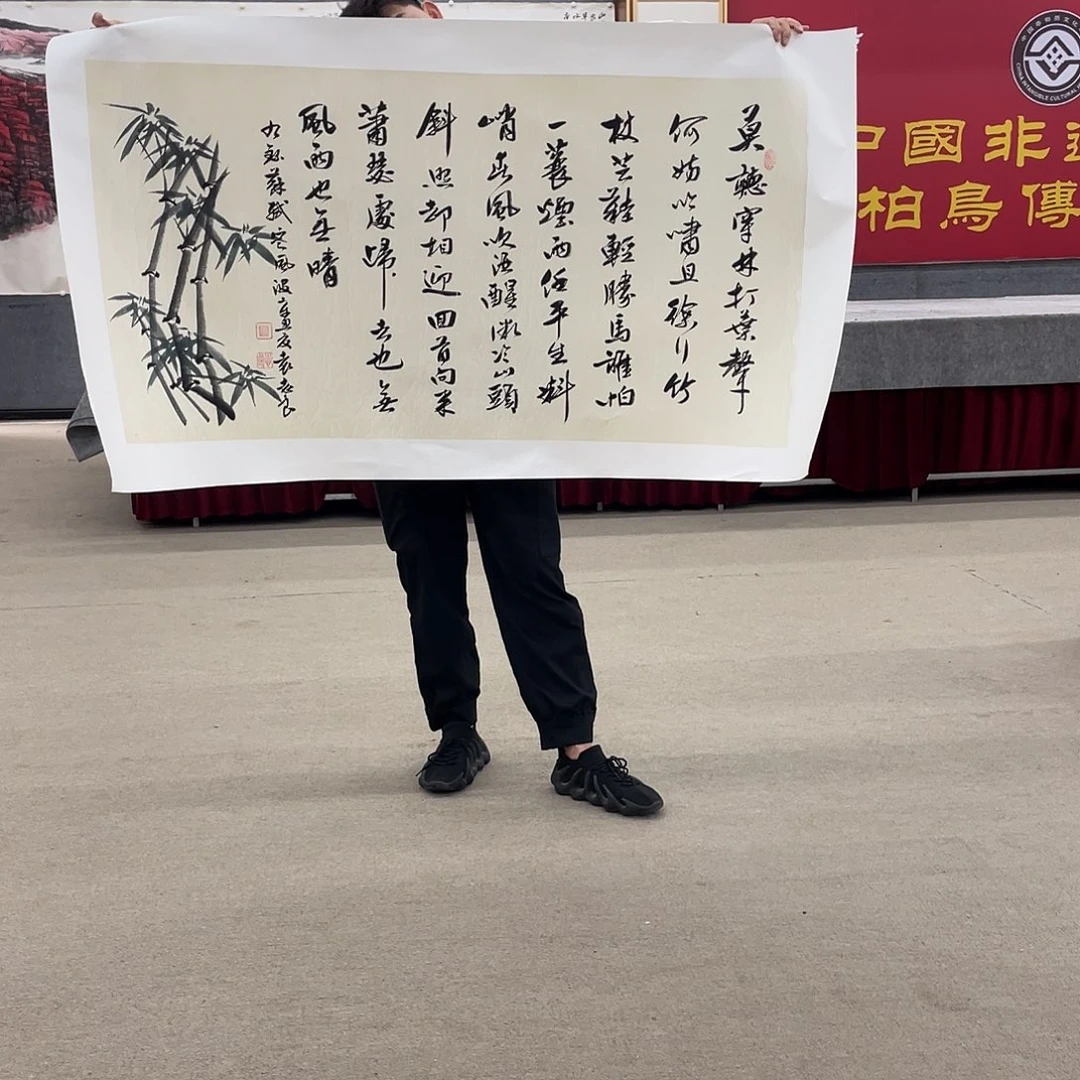 莫聽穿林打葉聲
何妨吟嘯且徐行竹
杖芒鞋輕勝馬誰怕
一蓑煙雨任平生料
峭春風吹酒醒微冷山頭
斜照却相迎回首向来
蕭瑟處歸去也無
風雨也無晴
蘇軾定風波
中國非
柏鳥傳
CHINA INTANGIBLE CULTURAL